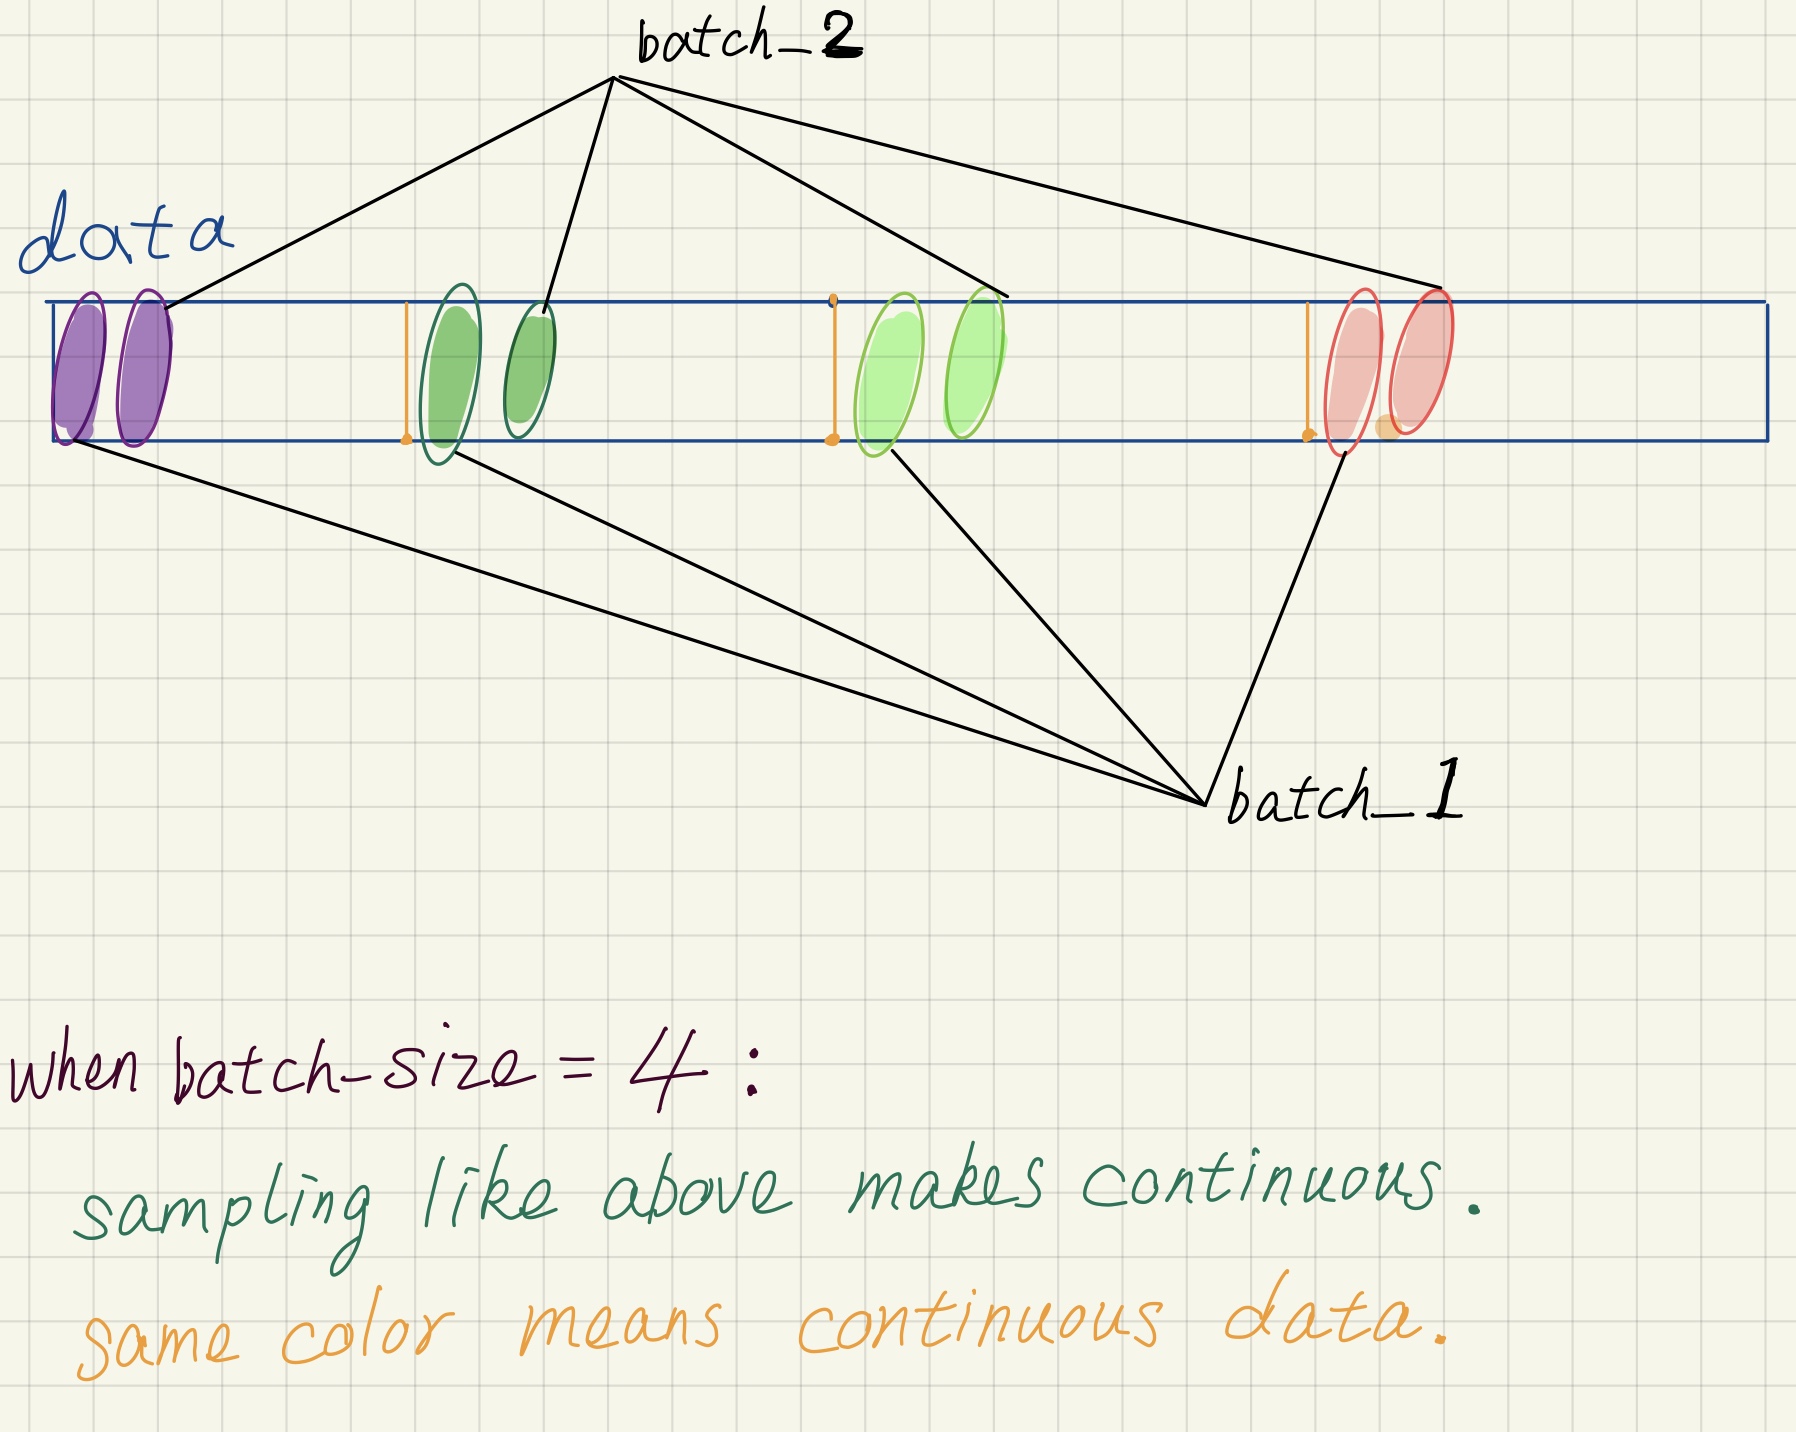 batch_2
data
batch_1
when batch-size = 4 :
sampling like above makes continuous.
same color means continuous data.